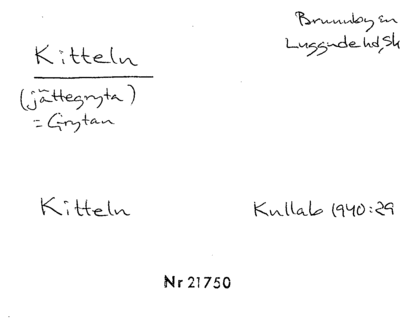 Brunnby sn
Luggude hd, Sk
Kitteln
(jättegryta)
= Grytan
Kitteln
Kullab 1940:29
Nr 21750